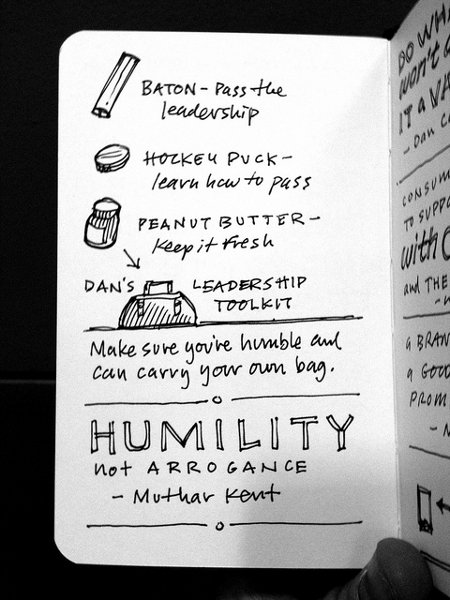 BATON - Pass the
leadership
HOCKEY PUCK -
learn how to pass
PEANUT BUTTER -
Keep it Fresh
DAN'S LEADERSHIP
TOOLKIT
Make sure you're humble and
can carry your own bag.
HUMILITY
not ARROGANCE
- Muthar Kent
DO WHA
won't
IT a VA
- Dan Co
CONSUM
TO SUPPO
with
and THE
a BRAN
a GOO
PROM